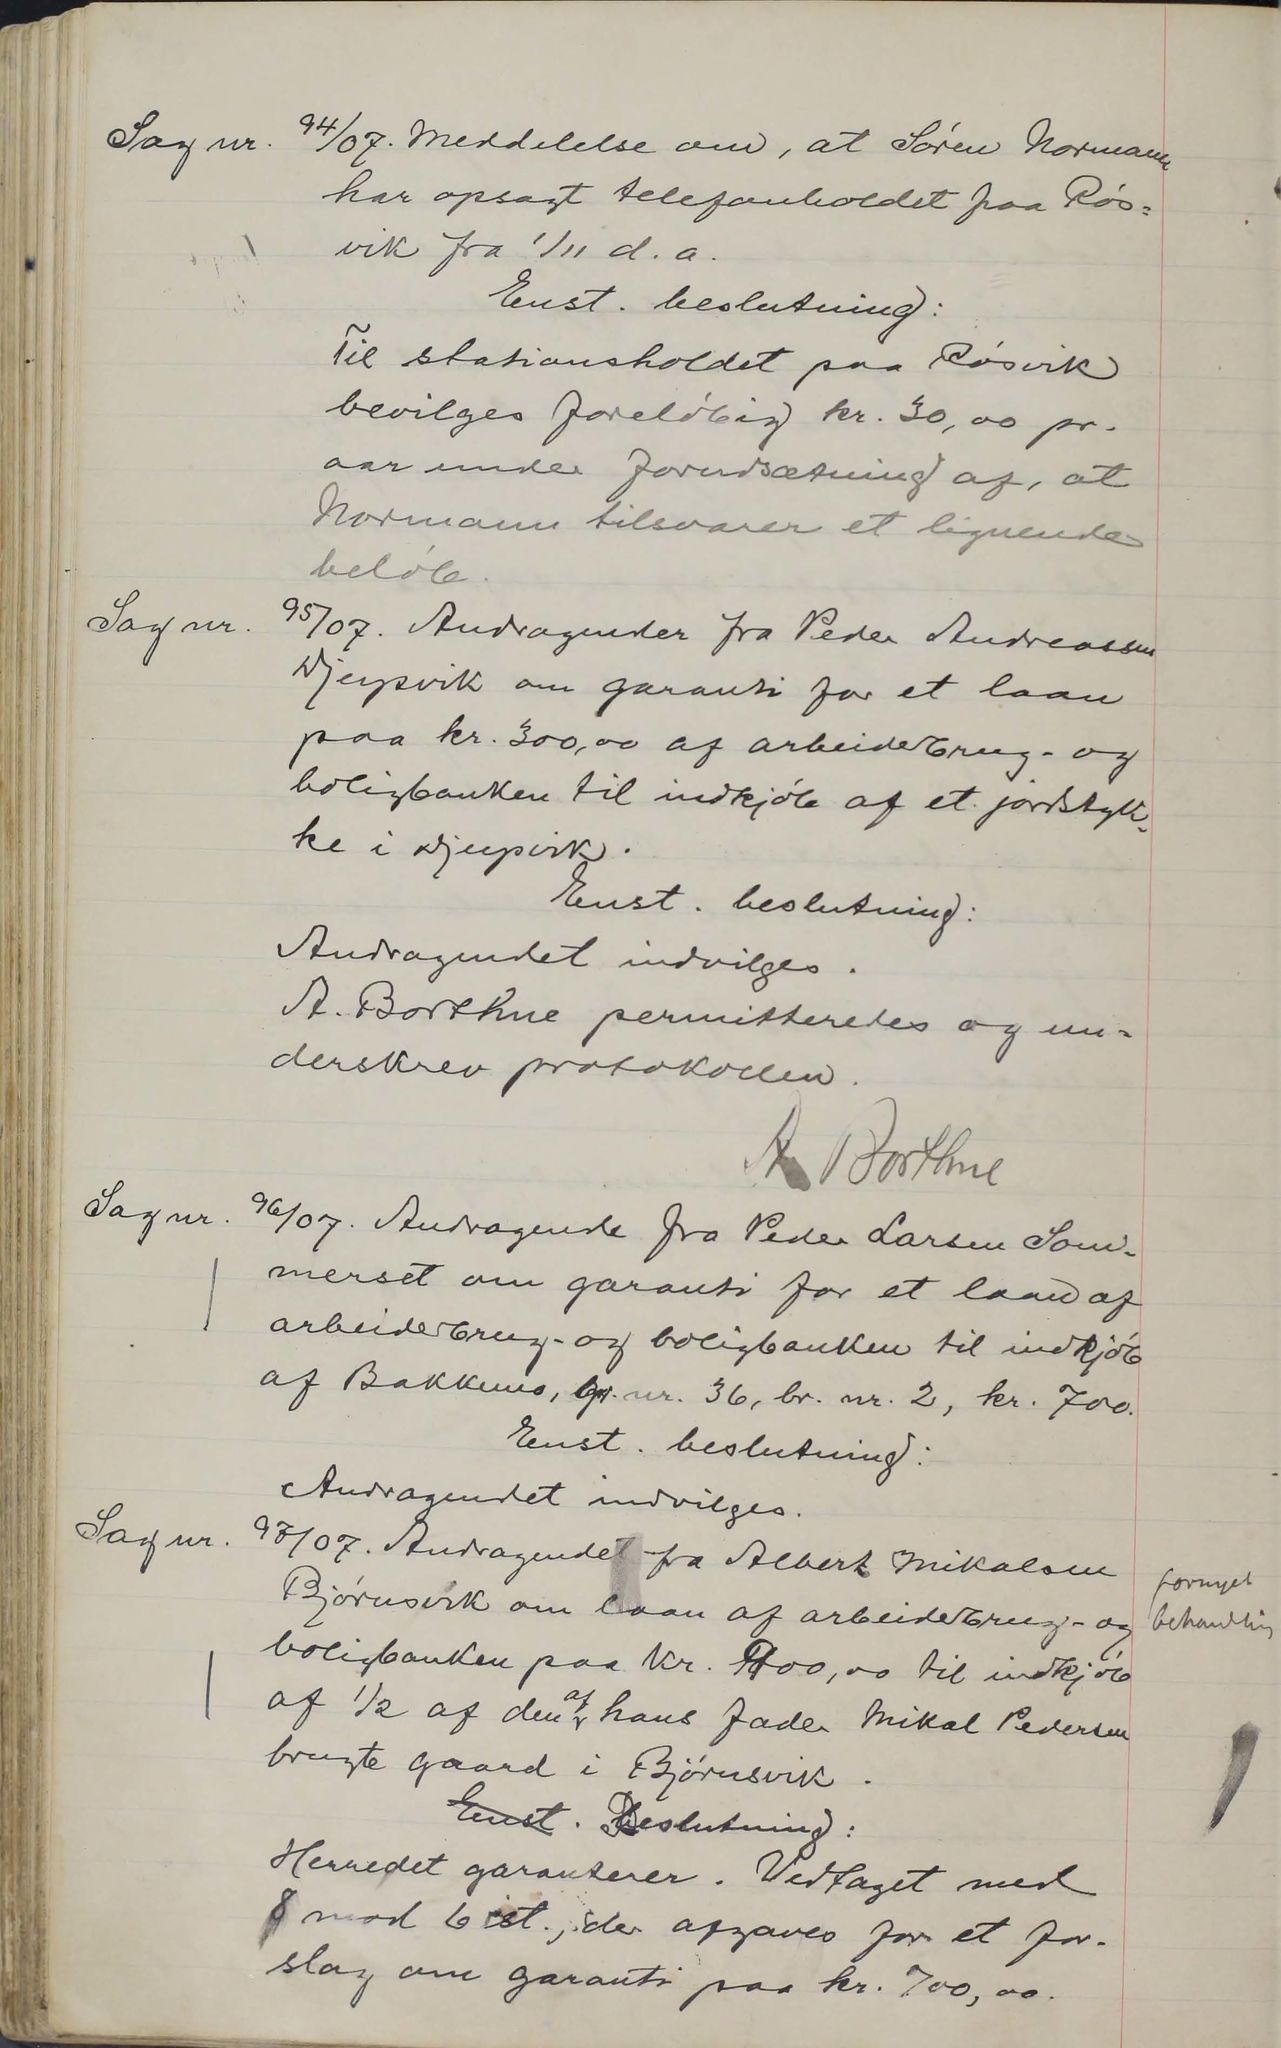 Sag nr. 94/07. Meddelelse om, at Søren Normann
har opsagt telefonholdet paa Røs-
vik fra 1/11 d. a.
Enst. beslutning:
Til stationsholdet paa Røsvik
bevilges foreløbig kr. 30,00 pr.
aar under forudsætning af, at
Normann tilsvarer et lignende
beløb.
Sag nr. 95/07. Andragender fra Peder Andreassen
Djupvik om garanti for et laan
paa kr. 300,00 af arbeiderbrug- og
boligbanken til indkjøb af et jordstyk-
ke i Djupvik.
Enst. beslutning:
Andragendet indvilges.
A. Borthne permitteredes og un-
derskrev protokollen.
A Borthne
Sag nr. 96/07. Andragende fra Peder Larsen Som-
merset om garanti for et laan af
arbeiderbrug- og boligbanken til indkjøb
af Bakkens, gr. nr. 36, br. nr. 2, kr. 700.
Enst. beslutning:
Andragendet indvilges.
Sag nr. 97/07. Andragendet fra Albert Mikalsen
Bjørnsvik om laan af arbeiderbrug- og
boligbanken paa kr. 00,00 til indkjøb
af 1/2 af den af hans fader Mikal Pedersen
brugte gaard i Bjørnsvik.
fornyet
behandling
Enst. Beslutning:
Herredet garanterer. Vedtaget med
8 mod 6 st., der afgaves for et for-
slag om garanti paa kr. 700,00.